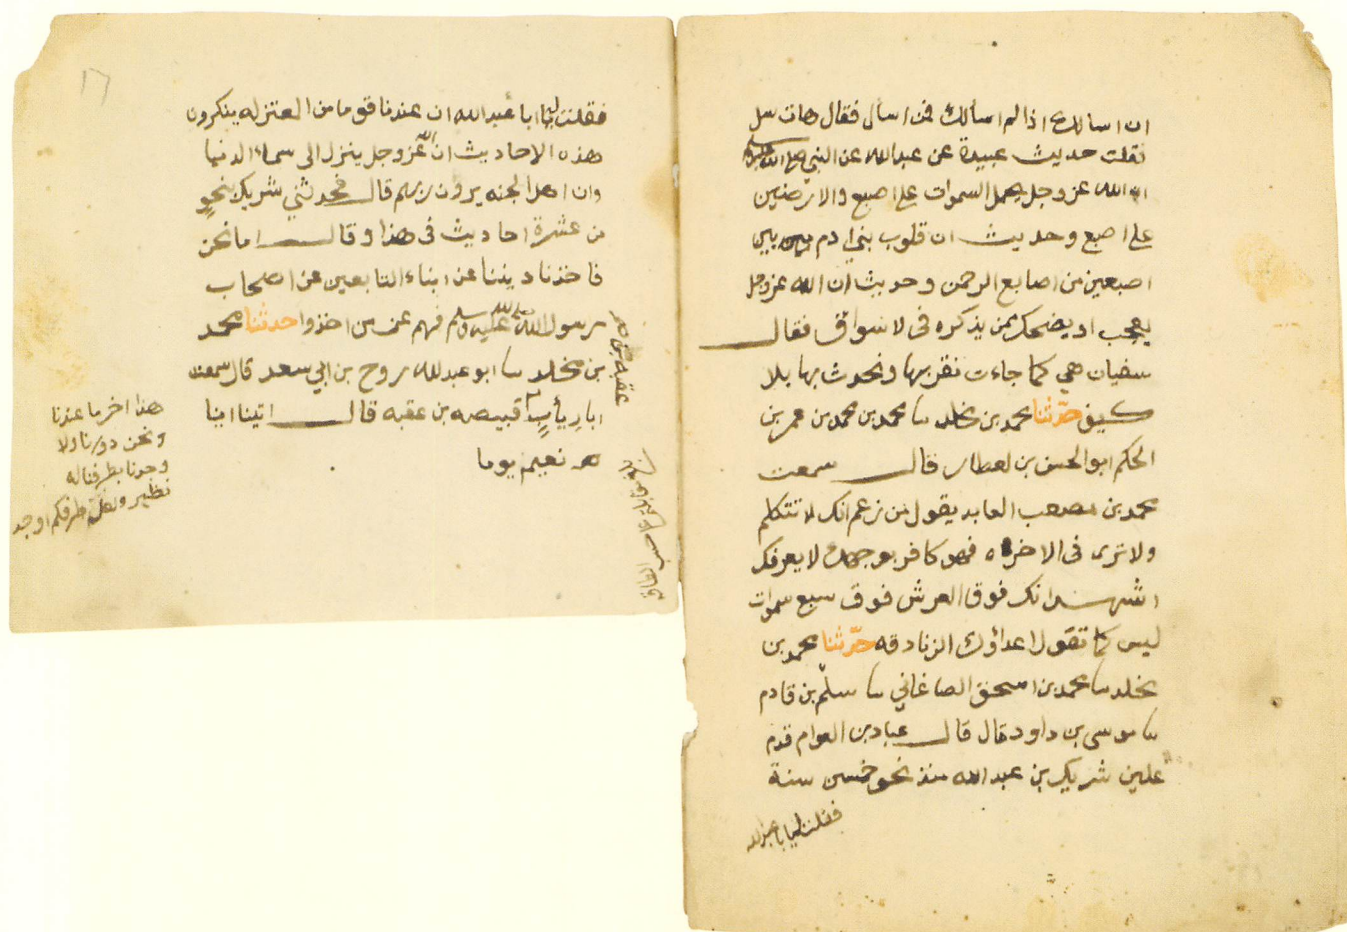 ان اسالك اذا لم اسألك فمن اسأل فقال هات سل
فقلت حديث عبيدة عن عبدالله عن النبي صلى الله عليه وسلم
ان الله عز وجل يحمل السموات على اصبع والارضين
على اصبع وحديث ان قلوب بني ادم بين
اصبعين من اصابع الرحمن وحديث ان الله عز وجل
يعجب او يضحك ممن يذكره في لاسواق فقال
سفيان هي كما جاءت نقر بها ونحدث بها بلا
كيف حدثنا محمد بن مخلد سا محمد بن محمد بن عمر بن
الحكم ابو الحسن بن لعطار قال سمعت
محمد بن مصعب العابد يقول من زعم انك لا تتكلم
ولا ترى في الاخره فهو كافر بوجهك لا يعرفك
اشهد انك فوق العرش فوق سبع سموات
ليس كما تقول اعداؤك الزنادقه حدثنا محمد بن
مخلد سا محمد بن اسحق الصاغاني سا سلم بن قادم
سا موسى بن داود قال قال عباد بن العوام قدم
علين شريك بن عبد الله منذ نحو خمسين سنة
فقلت يا ابا عبدالله
١٦
فقلت يا ابا عبد الله ان عندنا قوما من المعتزله ينكرون
هذه الاحاديث ان الله عز وجل ينزل الى سماء الدنيا
وان اهل الجنه يرون ربهم قال فحدثني شريك بنحو
من عشرة احاديث في هذا وقال اما نحن
فاخذنا ديننا عن ابناء التابعين عن اصحاب
رسول الله صلى الله عليه وسلم فهم عمن اخذوا حدثنا محمد
بن مخلد سا ابو عبد لله روح بن ابي سعد قال سمعت
ابا قبيصه بن عقبه قال اتينا ابا
نعيم يوما
عقبه
هذا اخر ما عندنا
ونحن دورنا ولا
وجدنا بطرفنا له
نظير ولعل طرفكم اوجد